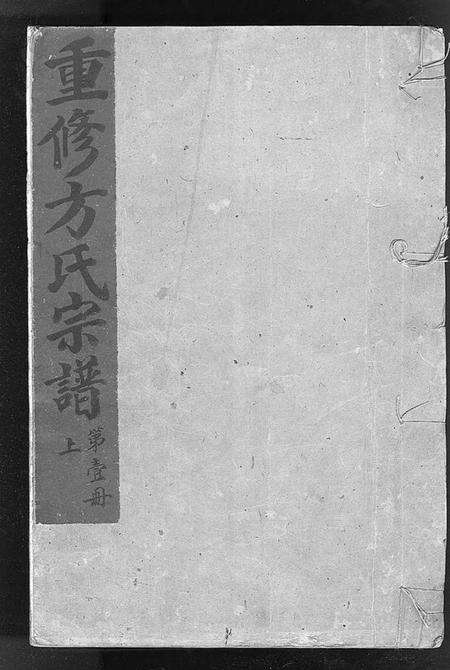 重修方氏宗譜
第壹冊
上